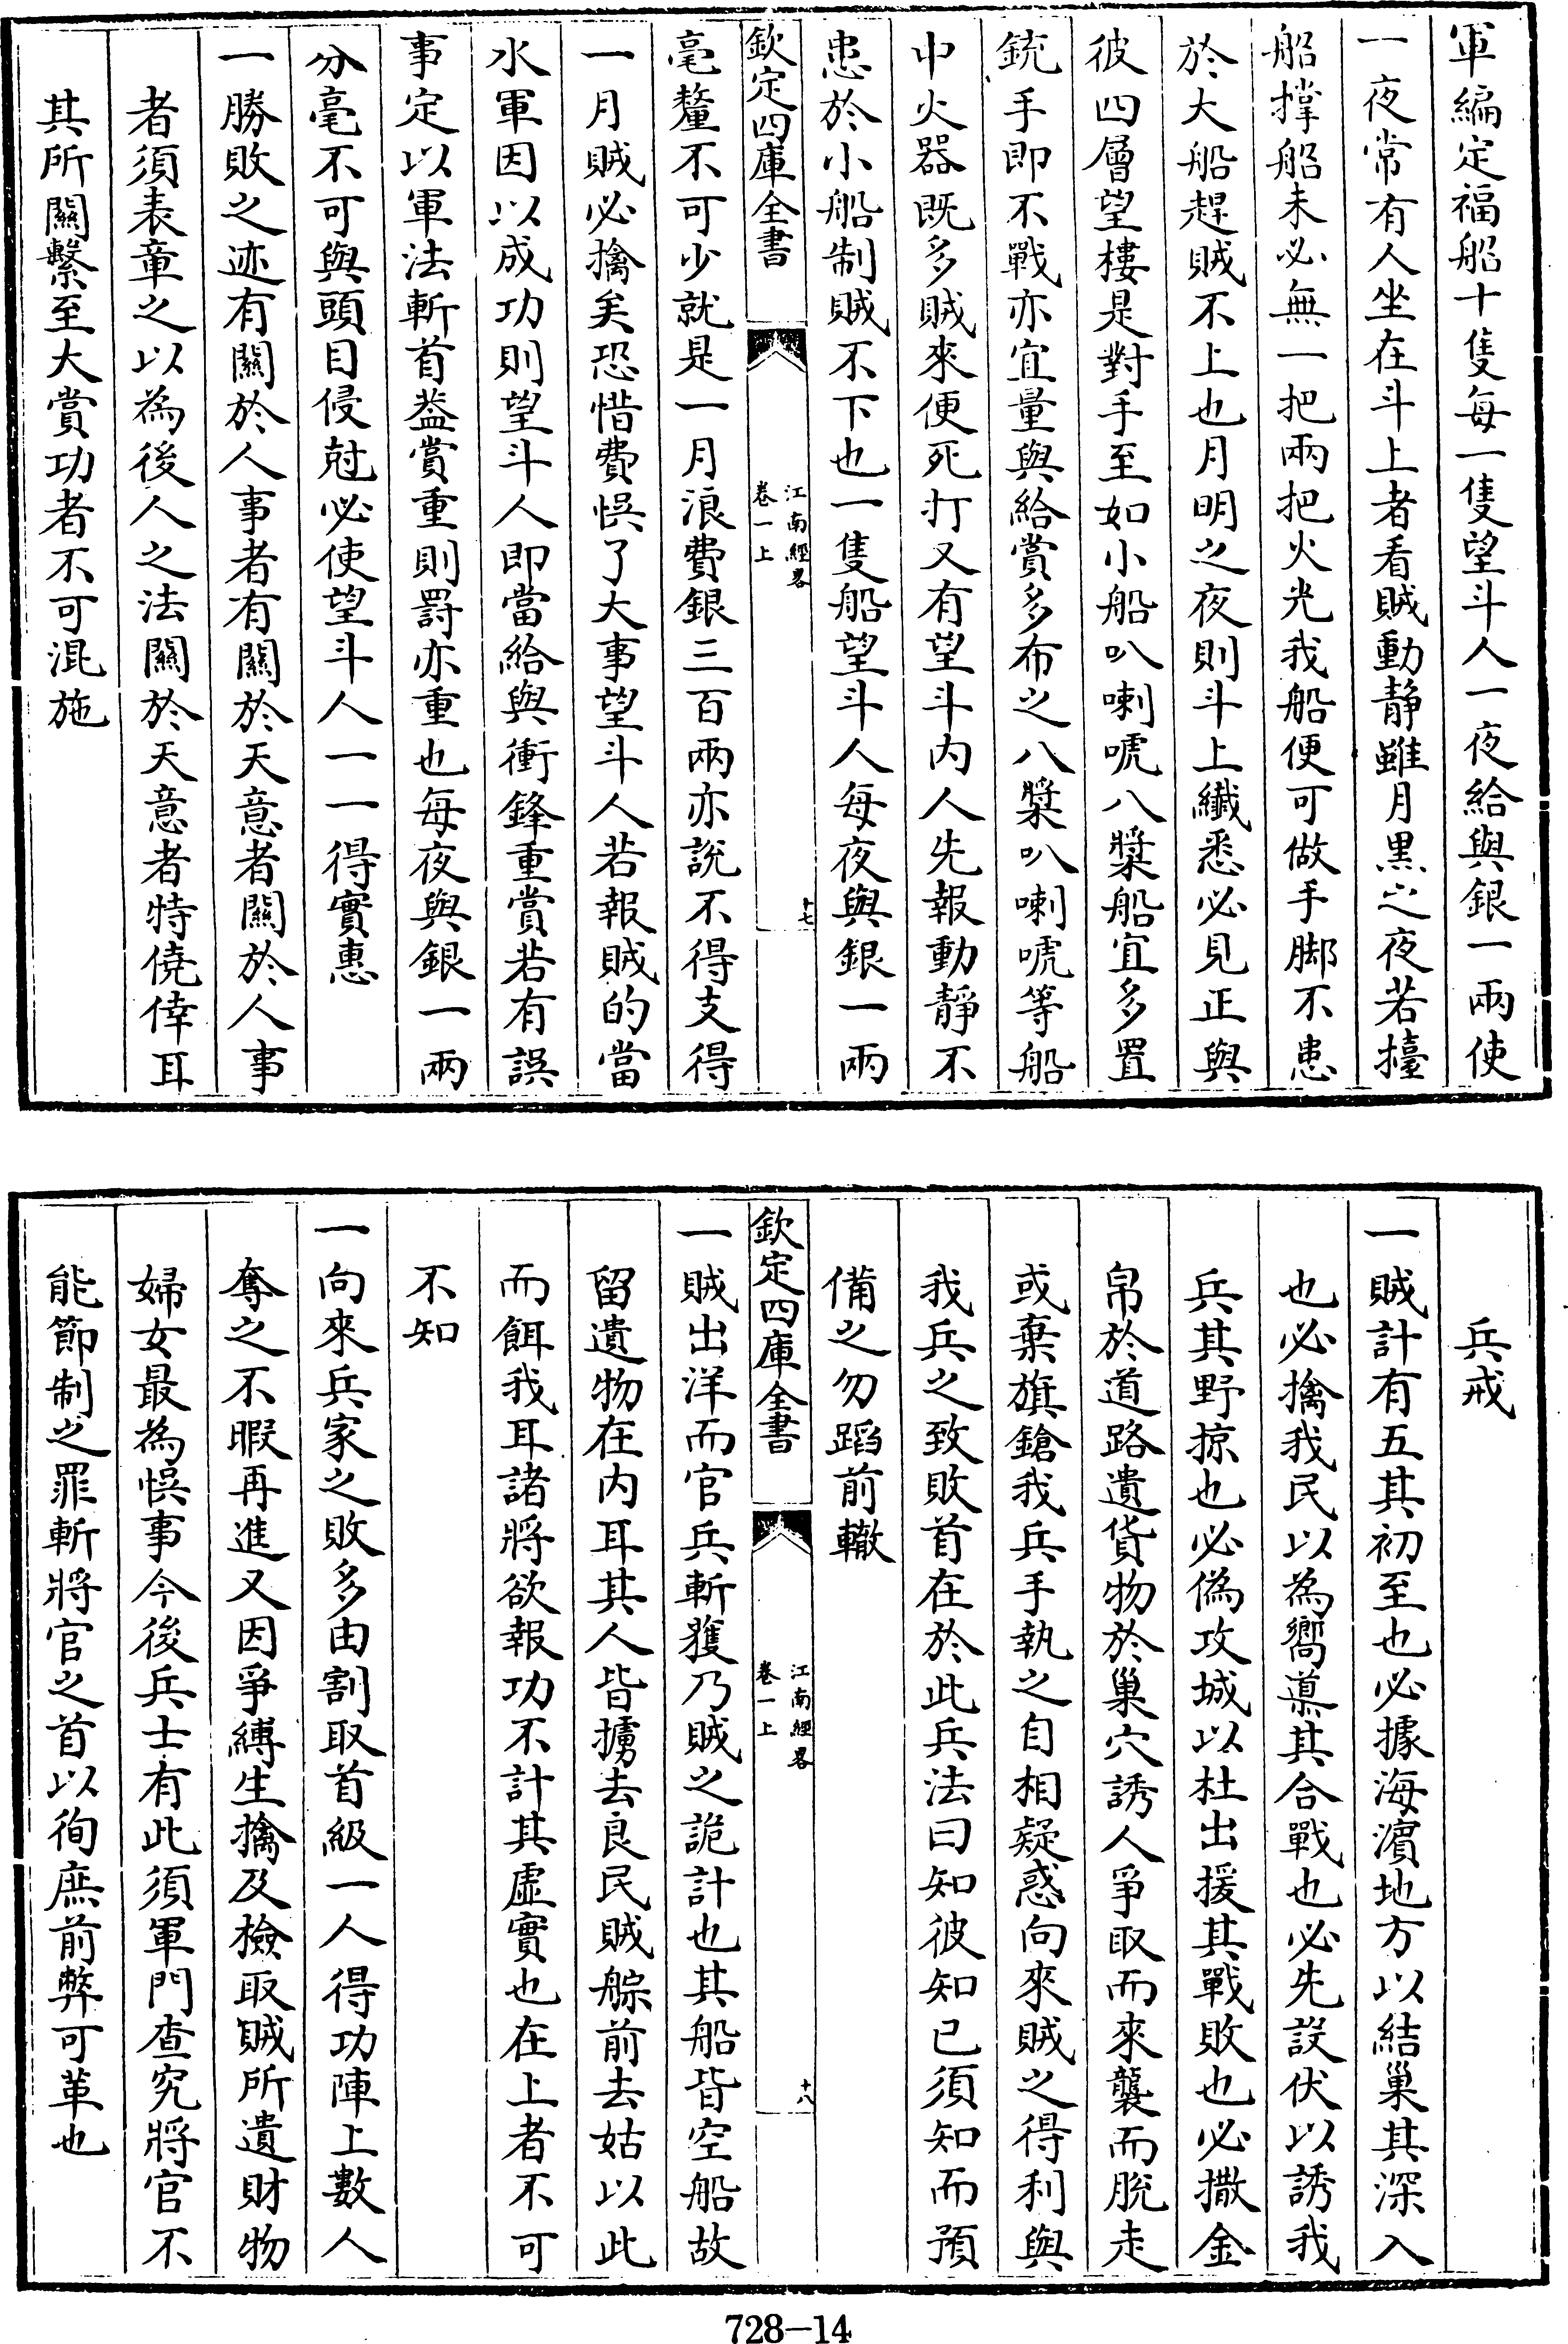 軍編定福船十隻每一隻望斗人一夜給與銀一兩使
一夜常有人坐在斗上者看賊動靜雖月黒之夜若擡
船撑船未必無一把兩把火光我船便可做手脚不患
於大船趕賊不上也月明之夜則斗上纎悉必見正與
彼四層望樓是對手至如小船叭喇唬八槳船宜多置
銃手即不戰亦宜量與給賞多布之八槳叭喇唬等船
中火器既多賊來便死打又有望斗内人先報動靜不
患於小船制賊不下也一隻船望斗人每夜與銀一兩
欽定四庫全書
江南經畧
卷一上
十七
毫釐不可少就是一月浪費銀三百兩亦説不得支得
一月賊必擒矣恐惜費悮了大事望斗人若報賊的當
水軍因以成功則望斗人即當給與衝鋒重賞若有誤
事定以軍法斬首葢賞重則罸亦重也每夜與銀一兩
分毫不可與頭目侵尅必使望斗人一一得實惠
一勝敗之迹有關於人事者有關於天意者關於人事
者須表章之以為後人之法關於天意者特僥倖耳
其所關繫至大賞功者不可混施
兵戒
一賊計有五其初至也必據海濵地方以結巢其深入
也必擒我民以為嚮導其合戰也必先設伏以誘我
兵其野掠也必偽攻城以杜出援其戰敗也必撒金
帛於道路遺貨物於巢穴誘人爭取而來襲而脱走
或棄旗鎗我兵手執之自相疑惑向來賊之得利與
我兵之致敗首在於此兵法曰知彼知已須知而預
備之勿蹈前轍
欽定四庫全書
江南經畧
卷一上
十八
一賊出洋而官兵斬獲乃賊之詭計也其船皆空船故
留遺物在内耳其人皆擄去良民賊䑸前去姑以此
而餌我耳諸將欲報功不計其虚實也在上者不可
不知
一向來兵家之敗多由割取首級一人得功陣上數人
奪之不暇再進又因爭縛生擒及檢取賊所遺財物
婦女最為悮事今後兵士有此須軍門查究將官不
能節制之罪斬將官之首以徇庶前弊可革也
728-14